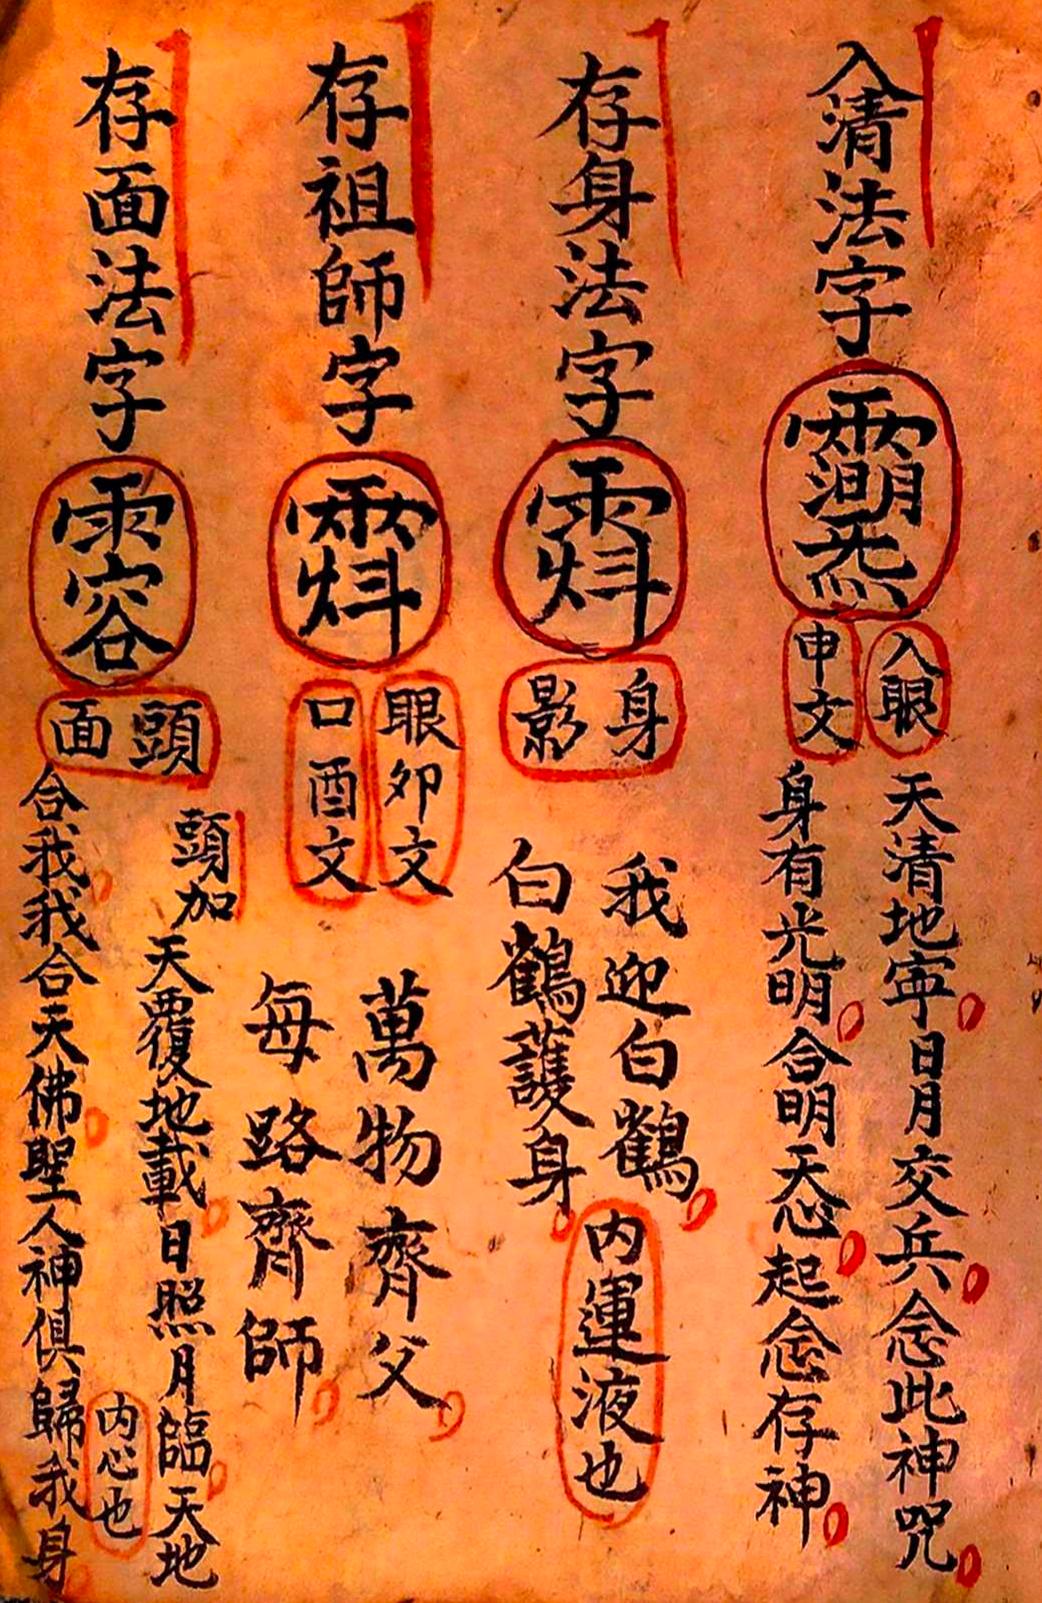 入清法字
入眼
申文
天清地寧日月交兵念此神咒
身有光明合明天心起念存神
存身法字
身影
我迎白鶴
白鶴護身
内運液也
存祖師字
眼卯文
口酉文
萬物齊父
每路齊師
存面法字
頭面
頭加
天覆地載日照月臨天地
合我我合天佛聖人神俱歸我身
内心也